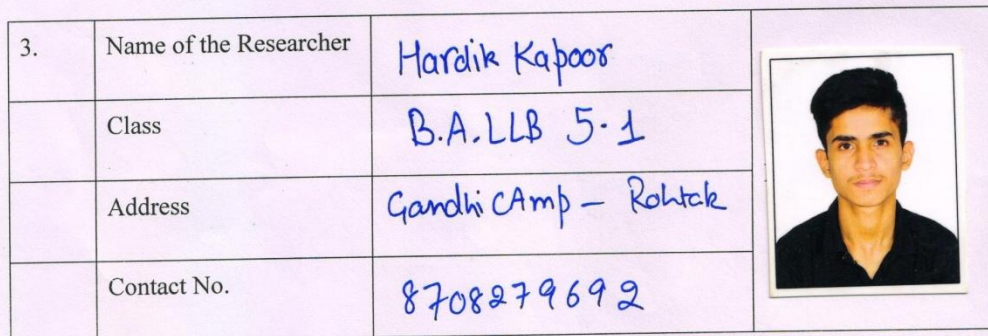 3. Name of the Researcher Hardik Kapoor
Class B.A.LLB 5.1
Address Gandhi CAmp - Rohtak
Contact No. 8708279692